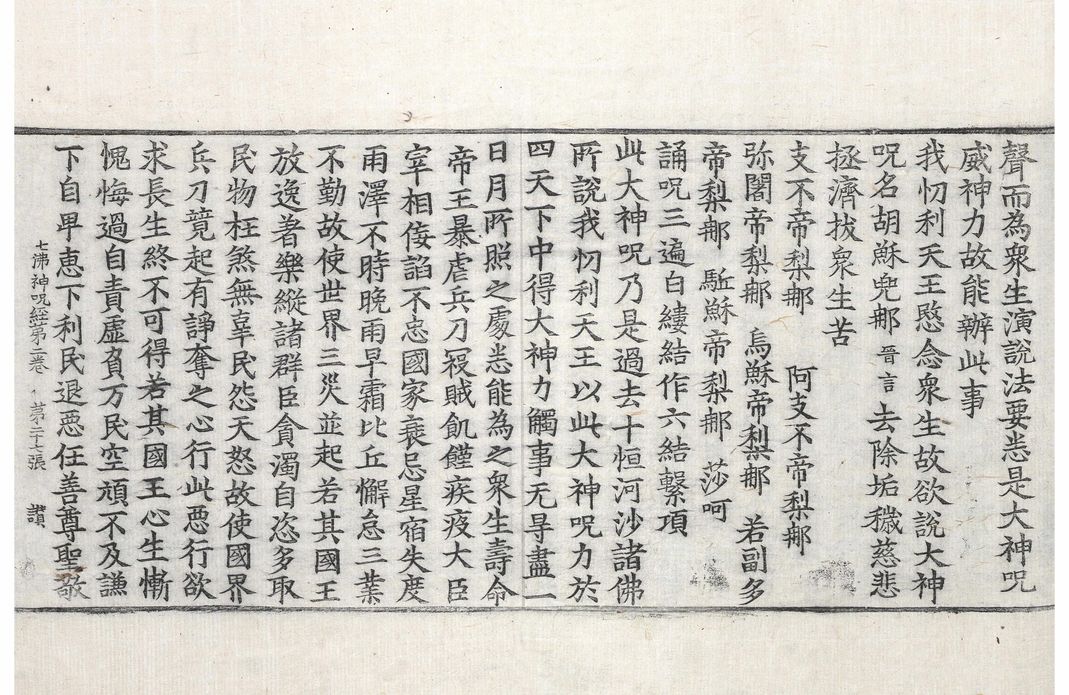 聲而為衆生演說法要悉是大神呪
威神力故能辦此事
我忉利天王愍念衆生故欲說大神
呪名胡穌兜那 晉言 去除垢穢慈悲
拯濟拔衆生苦
支不帝梨那 阿支不帝梨那
弥闍帝梨那 烏穌帝梨那 若副多
帝梨那 䭾穌帝梨那 莎呵
誦呪三遍白縷結作六結繫項
此大神呪乃是過去十恒河沙諸佛
所說我忉利天王以此大神呪力於
四天下中得大神力觸事无㝵盡一
日月所照之處悉能為之衆生壽命
帝王暴虐兵刀寇賊飢饉疾疫大臣
宰相侫諂不忠國家衰忌星宿失度
雨澤不時晚雨早霜比丘懈怠三業
不勤故使世界三災並起若其國王
放逸著樂縱諸群臣貪濁自恣多取
民物枉煞無辜民怨天怒故使國界
兵刀競起有諍奪之心行此惡行欲
求長生終不可得若其國王心生慚
愧悔過自責虛貧万民空頑不及謙
下自卑惠下利民退惡任善尊聖敬
七佛神呪経第二卷 第二十七張 讚